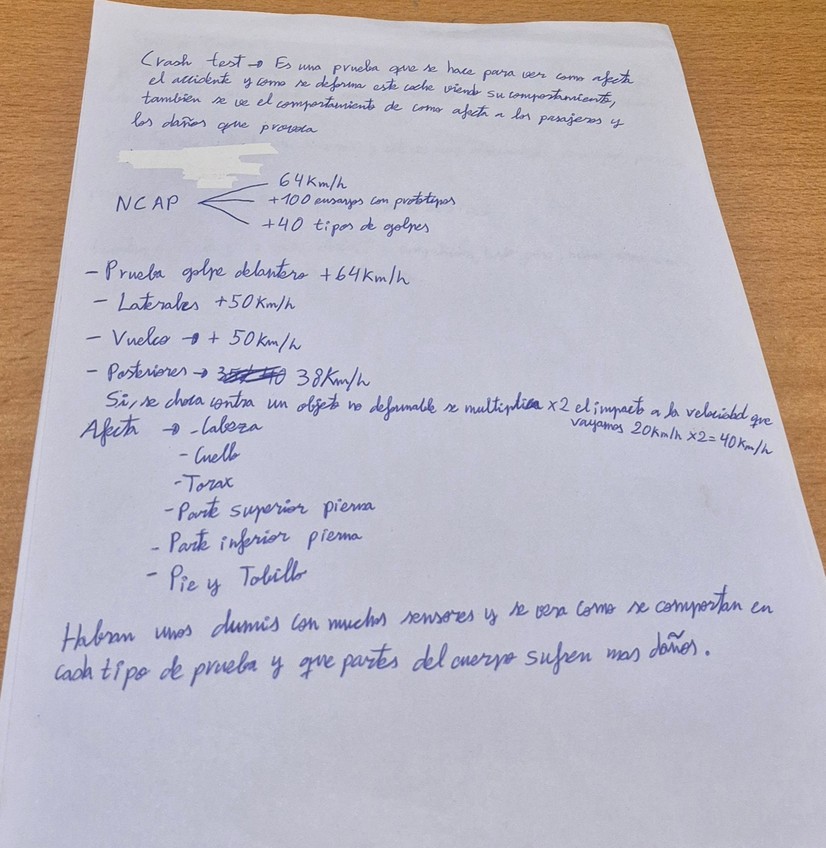 Crash test → Es una prueba que se hace para ver como afecta
el accidente y como se deforma este coche viendo su comportamiento,
tambien se ve el comportamiento de como afecta a los pasajeros y
los daños que provoca
64Km/h
NCAP +100 ensayos con prototipos
+40 tipos de golpes
- Prueba golpe delantero +64Km/h
- Laterales +50Km/h
- Vuelco → + 50Km/h
- Posteriores → 38Km/h
Si, se choca contra un objeto no deformable se multiplica x2 el impacto a la velocidad que
vayamos 20Km/h x2=40Km/h
Afecta → - Cabeza
- Cuello
- Torax
- Parte superior pierna
- Parte inferior pierna
- Pie y Tobillo
Habran unos dumis con muchos sensores y se vera como se comportan en
cada tipo de prueba y que partes del cuerpo sufren mas daños.